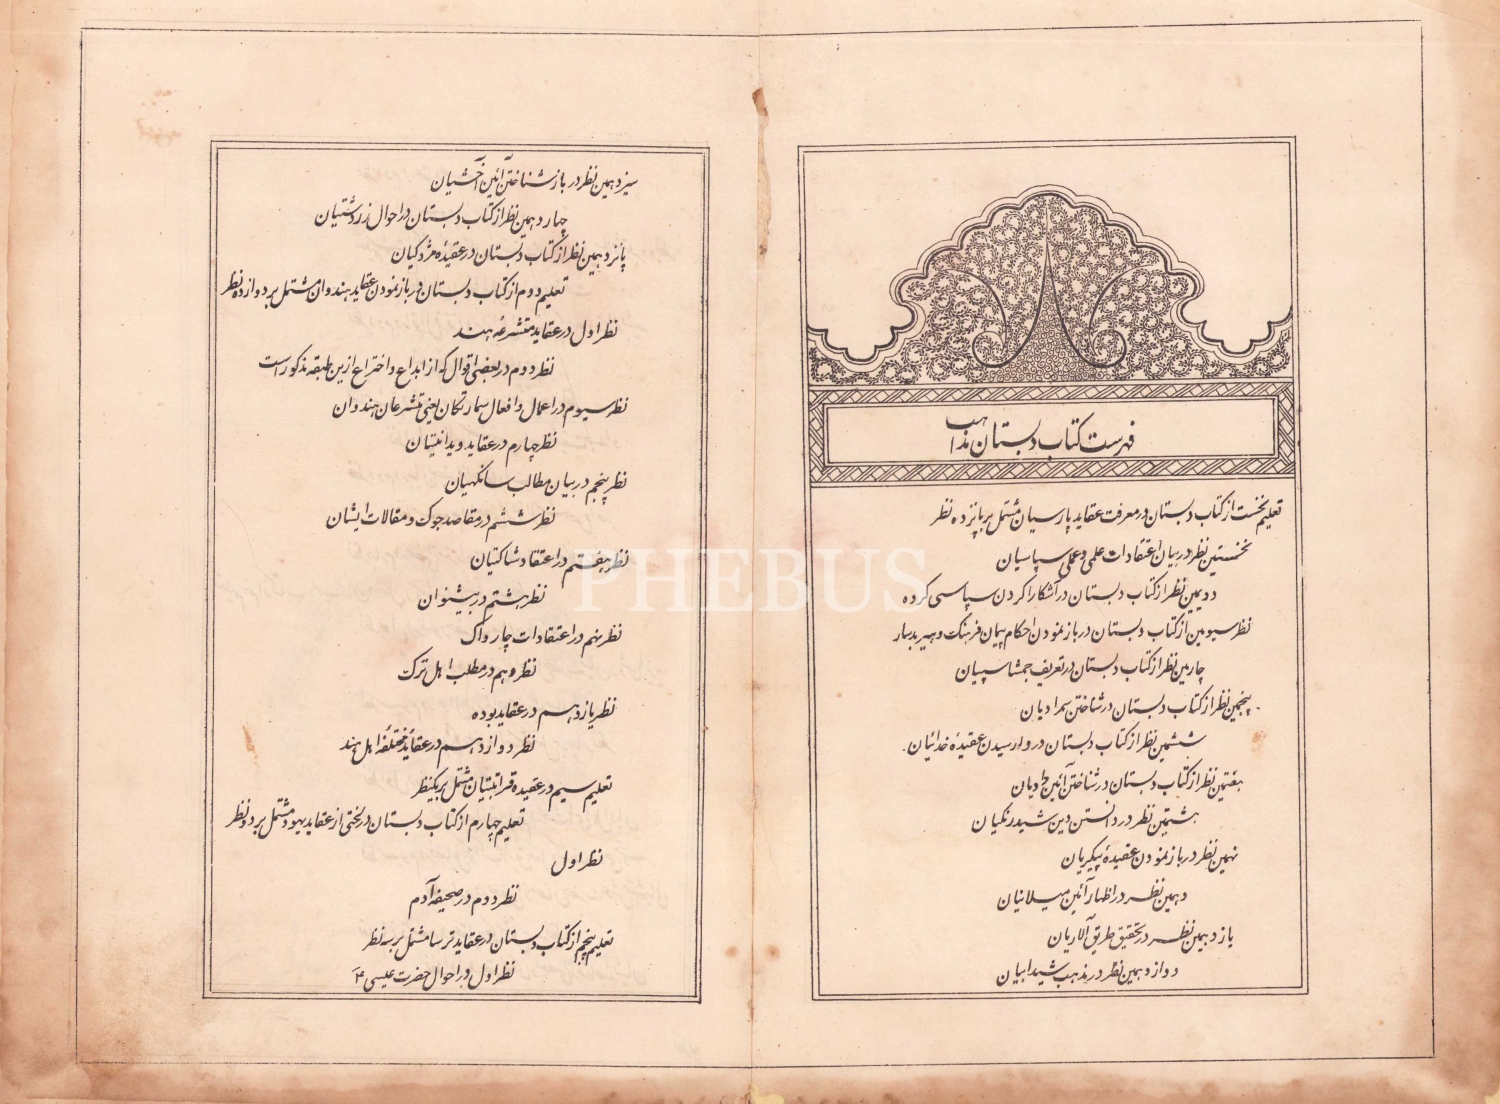 فهرست کتاب دبستان مذاهب
تعلیم نخست از کتاب دبستان در معرفت عقاید پارسیان مشتمل بر پانزده نظر
نخستین نظر در بیان اعتقادات علمی و عملی سپاسیان
دویمین نظر از کتاب دبستان در آشکارا کردن سپاسی کرده
نظر سیومین از کتاب دبستان در باز نمودن احکام پیمان فرهنگ و هیربدسار
چارمین نظر از کتاب دبستان در تعریف جمشاسپیان
پنجمین نظر از کتاب دبستان در شناختن سمرادیان
ششمین نظر از کتاب دبستان در وارسیدن عقیدهٔ خدائیان
هفتمین نظر از کتاب دبستان در شناختن آئین رادیان
هشتمین نظر در دانستن دین شیدرنگیان
نهمین نظر در باز نمودن عقیدهٔ پیکریان
دهمین نظر در اظهار آئین میلانیان
یازدهمین نظر در تحقیق طریق آلاریان
دوازدهمین نظر در مذهب شیدابیان
سیزدهمین نظر در باز شناختن آئین آخشیان
چهاردهمین نظر از کتاب دبستان در احوال زردشتیان
پانزدهمین نظر از کتاب دبستان در عقیدهٔ مزدکیان
تعلیم دوم از کتاب دبستان در باز نمودن عقاید هندوان مشتمل بر دوازده نظر
نظر اول در عقاید متشرعهٔ هند
نظر دوم در بعضی اقوال که از ابداع و اختراع ازین طبقه مذکور است
نظر سیوم در اعمال و افعال سمارتکان یعنی متشرعان هندوان
نظر چهارم در عقاید ویدانتیان
نظر پنجم در بیان مطالب سانکهیان
نظر ششم در مقاصد جوک و مقالات ایشان
نظر هفتم در اعتقاد شاکتیان
نظر هشتم در بشنوان
نظر نهم در اعتقادات چارواک
نظر دهم در مطلب اهل ترک
نظر یازدهم در عقاید بوده
نظر دوازدهم در عقاید مختلفهٔ اهل هند
تعلیم سیم در عقیده قرا تبتیان مشتمل بر یک نظر
تعلیم چهارم از کتاب دبستان در لختی از عقاید یهود مشتمل بر دو نظر
نظر اول
نظر دوم در صحیفهٔ آدم
تعلیم پنجم از کتاب دبستان در عقاید ترسا مشتمل بر سه نظر
نظر اول در احوال حضرت عیسی ع
PHEBUS